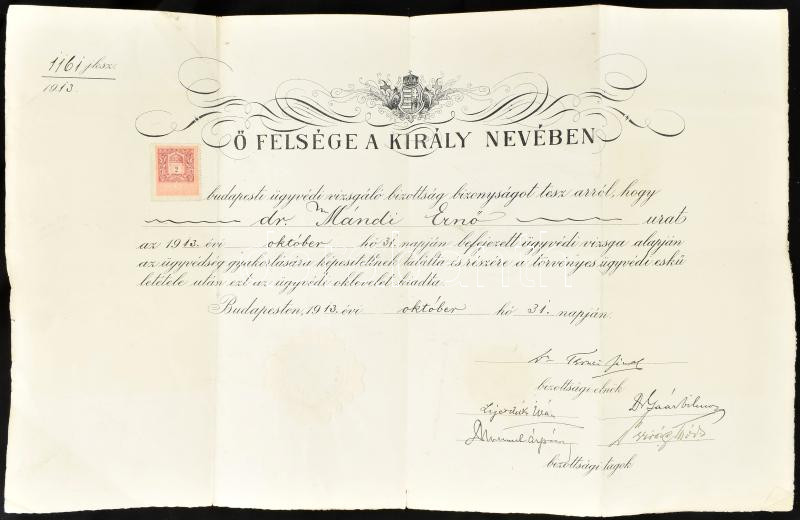 1161
1913.
Ő FELSÉGE A KIRÁLY NEVÉBEN
2
budapesti ügyvédi vizsgáló bizottság bizonyságot tesz arról, hogy
dr. Mándi Ernő urat
az 1913. évi október hó 31. napján befejezett ügyvédi vizsga alapján
az ügyvédség gyakorlására képesítettnek találta és részére a törvényes ügyvédi eskü
letétele után ezt az ügyvédi oklevelet kiadta.
Budapesten, 1913. évi október hó 31. napján.
Dr.
bizottsági elnök
Dr Gaár Vilmos
bizottsági tagok